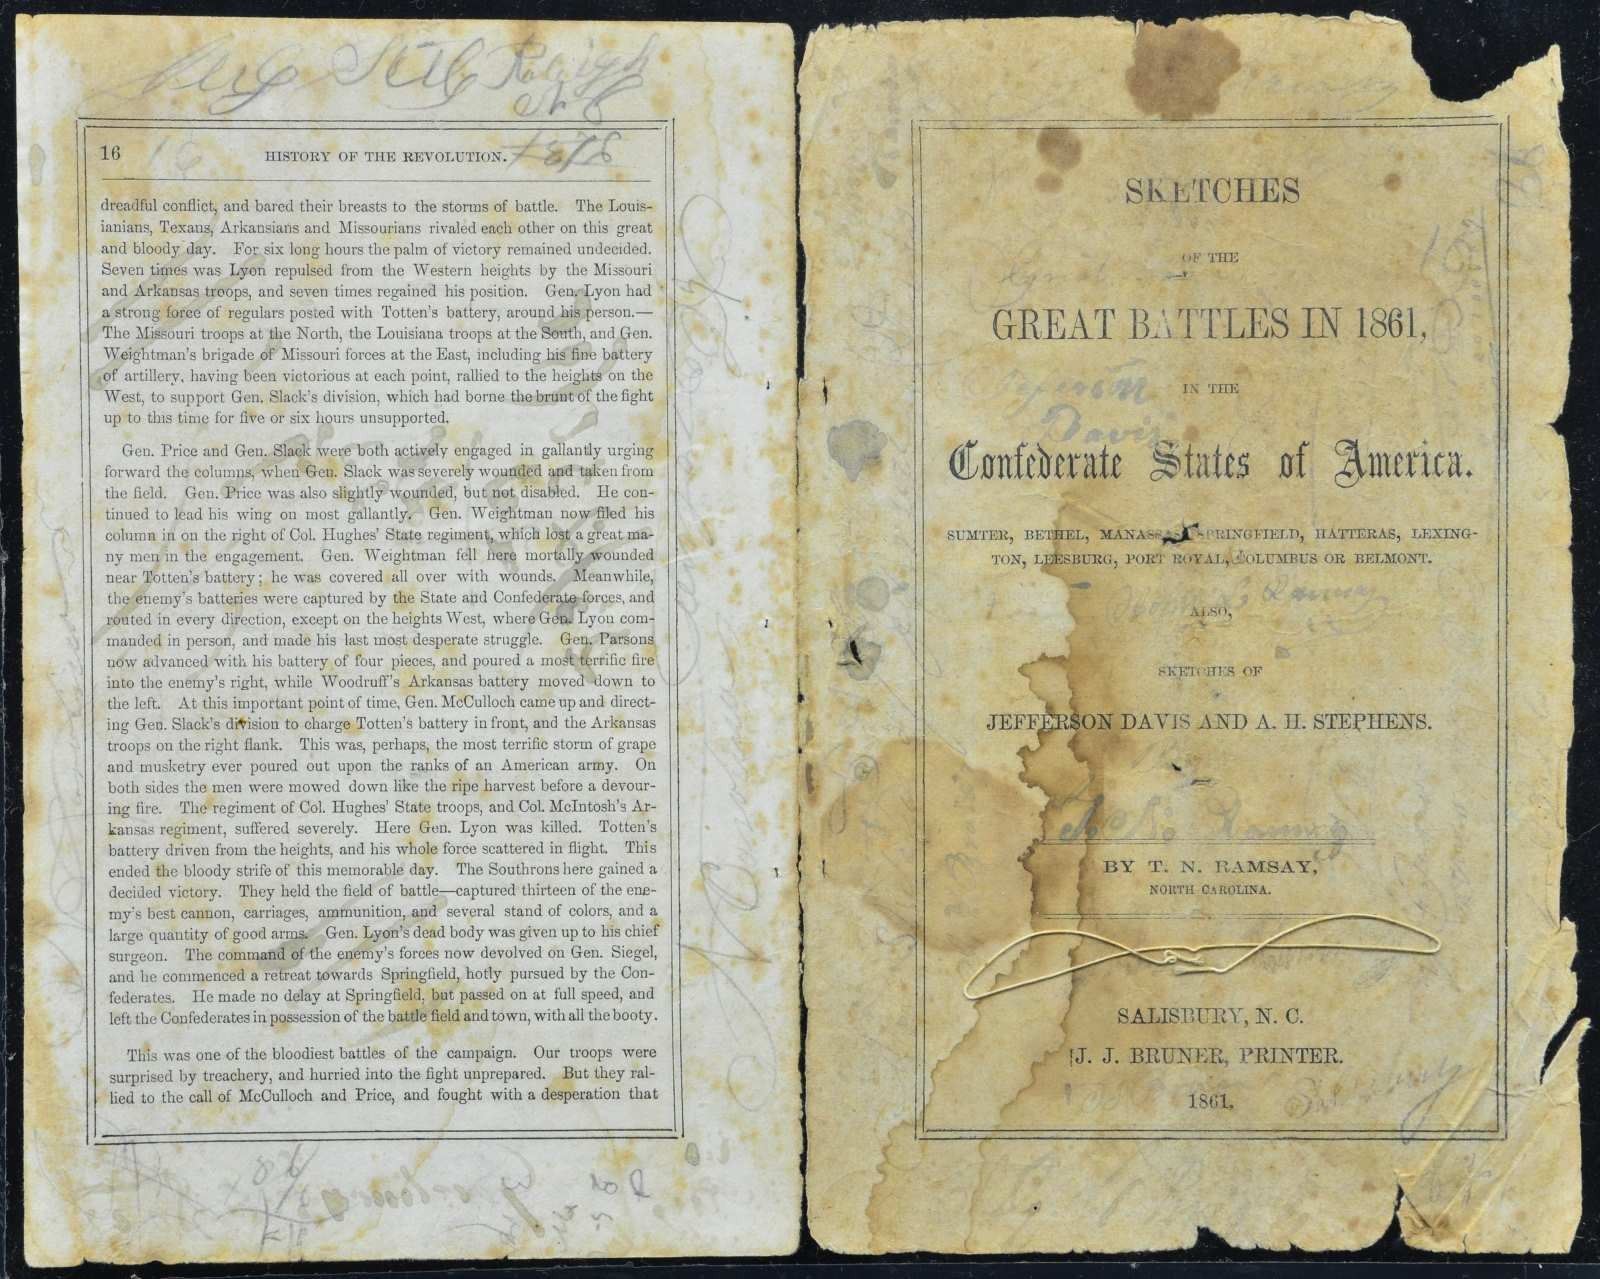 Raleigh
N C
16
HISTORY OF THE REVOLUTION.
dreadful conflict, and bared their breasts to the storms of battle. The Louis-
ianians, Texans, Arkansians and Missourians rivaled each other on this great
and bloody day. For six long hours the palm of victory remained undecided.
Seven times was Lyon repulsed from the Western heights by the Missouri
and Arkansas troops, and seven times regained his position. Gen. Lyon had
a strong force of regulars posted with Totten's battery, around his person.—
The Missouri troops at the North, the Louisiana troops at the South, and Gen.
Weightman's brigade of Missouri forces at the East, including his fine battery
of artillery, having been victorious at each point, rallied to the heights on the
West, to support Gen. Slack's division, which had borne the brunt of the fight
up to this time for five or six hours unsupported.
Gen. Price and Gen. Slack were both actively engaged in gallantly urging
forward the columns, when Gen. Slack was severely wounded and taken from
the field. Gen. Price was also slightly wounded, but not disabled. He con-
tinued to lead his wing on most gallantly. Gen. Weightman now filed his
column in on the right of Col. Hughes' State regiment, which lost a great ma-
ny men in the engagement. Gen. Weightman fell here mortally wounded
near Totten's battery; he was covered all over with wounds. Meanwhile,
the enemy's batteries were captured by the State and Confederate forces, and
routed in every direction, except on the heights West, where Gen. Lyon com-
manded in person, and made his last most desperate struggle. Gen. Parsons
now advanced with his battery of four pieces, and poured a most terrific fire
into the enemy's right, while Woodruff's Arkansas battery moved down to
the left. At this important point of time, Gen. McCulloch came up and direct-
ing Gen. Slack's division to charge Totten's battery in front, and the Arkansas
troops on the right flank. This was, perhaps, the most terrific storm of grape
and musketry ever poured out upon the ranks of an American army. On
both sides the men were mowed down like the ripe harvest before a devour-
ing fire. The regiment of Col. Hughes' State troops, and Col. McIntosh's Ar-
kansas regiment, suffered severely. Here Gen. Lyon was killed. Totten's
battery driven from the heights, and his whole force scattered in flight. This
ended the bloody strife of this memorable day. The Southrons here gained a
decided victory. They held the field of battle—captured thirteen of the ene-
my's best cannon, carriages, ammunition, and several stand of colors, and a
large quantity of good arms. Gen. Lyon's dead body was given up to his chief
surgeon. The command of the enemy's forces now devolved on Gen. Siegel,
and he commenced a retreat towards Springfield, hotly pursued by the Con-
federates. He made no delay at Springfield, but passed on at full speed, and
left the Confederates in possession of the battle field and town, with all the booty.
This was one of the bloodiest battles of the campaign. Our troops were
surprised by treachery, and hurried into the fight unprepared. But they ral-
lied to the call of McCulloch and Price, and fought with a desperation that
SKETCHES
OF THE
GREAT BATTLES IN 1861,
IN THE
Davis
Confederate States of America.
SUMTER, BETHEL, MANASSAS, SPRINGFIELD, HATTERAS, LEXING-
TON, LEESBURG, PORT ROYAL, COLUMBUS OR BELMONT.
ALSO,
SKETCHES OF
JEFFERSON DAVIS AND A. H. STEPHENS.
BY T. N. RAMSAY,
NORTH CAROLINA.
SALISBURY, N. C.
J. J. BRUNER, PRINTER.
1861.